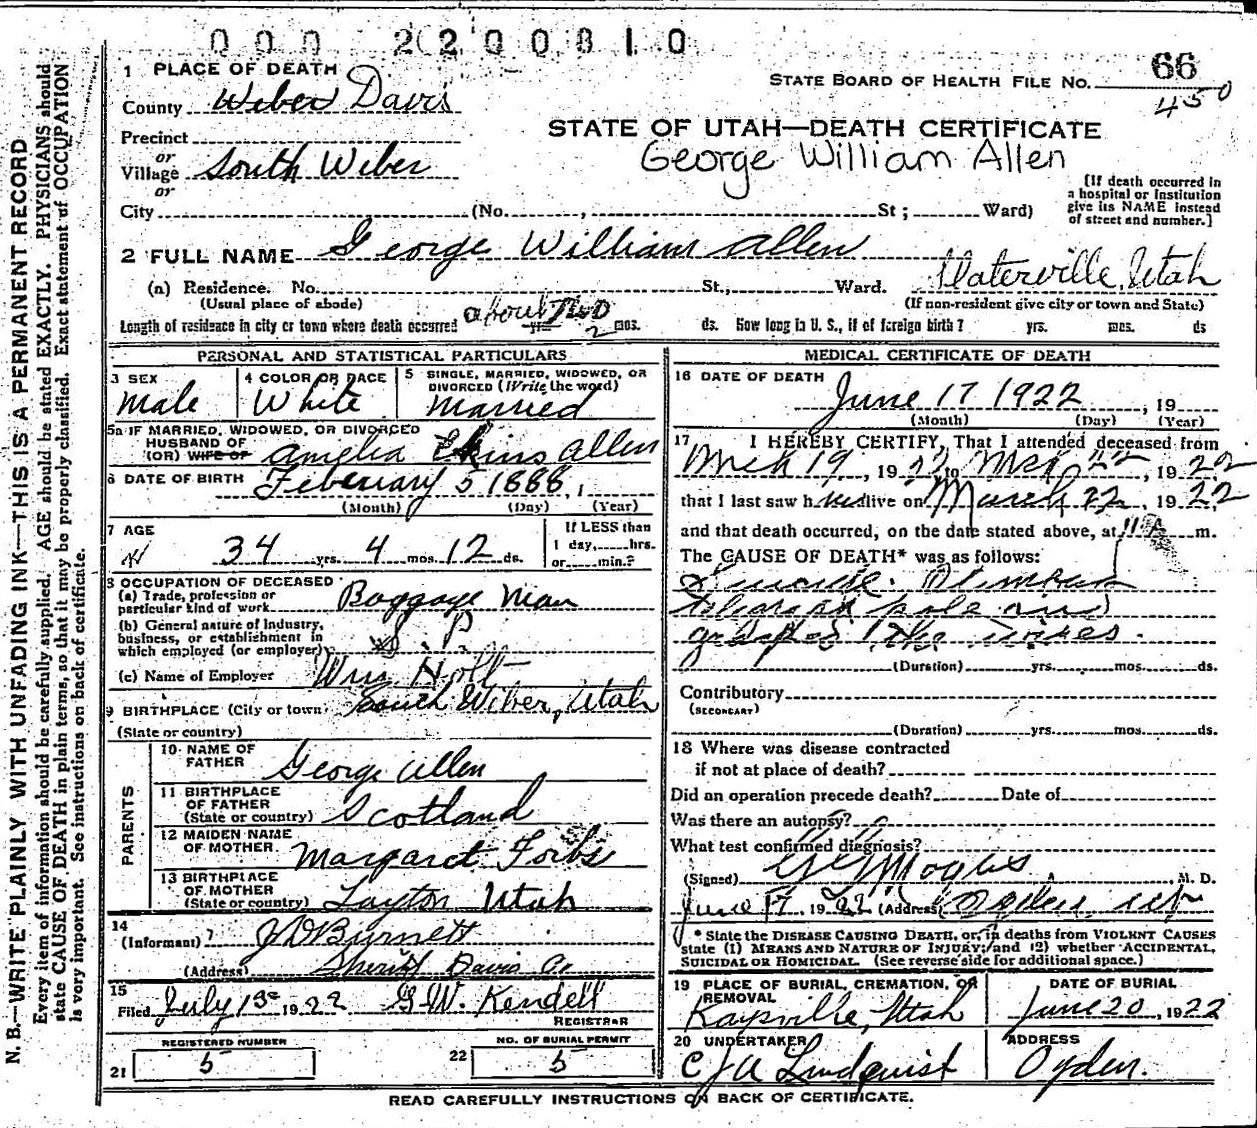 000 2200810
1 PLACE OF DEATH
County Weber Davis
STATE BOARD OF HEALTH FILE No. 66
450
STATE OF UTAH—DEATH CERTIFICATE
George William Allen
Precinct
or
Village South Weber
or
City (No. , St ; Ward)
[If death occurred in
a hospital or institution
give its NAME instead
of street and number.]
2 FULL NAME George William Allen
(a) Residence. No. St., Ward. Slaterville, Utah
(Usual place of abode) (If non-resident give city or town and State)
Length of residence in city or town where death occurred about Two yrs. 2 mos. ds. How long in U. S., if of foreign birth? yrs. mos. ds
PERSONAL AND STATISTICAL PARTICULARS
3 SEX
Male
4 COLOR OR RACE
White
5 SINGLE, MARRIED, WIDOWED, OR
DIVORCED (Write the word)
Married
5a IF MARRIED, WIDOWED, OR DIVORCED
HUSBAND OF
(OR) WIFE OF Amelia Ekins Allen
6 DATE OF BIRTH February 5 1888, 1
(Month) (Day) (Year)
7 AGE
34 yrs. 4 mos. 12 ds.
If LESS than
1 day, hrs.
or min.?
8 OCCUPATION OF DECEASED
(a) Trade, profession or
particular kind of work Baggage Man
(b) General nature of Industry,
business, or establishment in
which employed (or employer) S. P.
(c) Name of Employer Wm Holt
9 BIRTHPLACE (City or town) South Weber, Utah
(State or country)
PARENTS
10 NAME OF
FATHER George Allen
11 BIRTHPLACE
OF FATHER
(State or country) Scotland
12 MAIDEN NAME
OF MOTHER Margaret Forbs
13 BIRTHPLACE
OF MOTHER
(State or country) Layton Utah
14
(Informant) J D Burnett
(Address) Sheriff Davis Co
15
Filed July 1st 1922 G. W. Kendell
REGISTRAR
21 REGISTERED NUMBER
5
22 NO. OF BURIAL PERMIT
5
MEDICAL CERTIFICATE OF DEATH
16 DATE OF DEATH
June 17 1922, 19
(Month) (Day) (Year)
17 I HEREBY CERTIFY, That I attended deceased from
Mch 19, 1922 to Mch 22, 1922
that I last saw h im alive on March 22, 1922,
and that death occurred, on the date stated above, at 11 A m.
The CAUSE OF DEATH* was as follows:
Suicide. Climbed
telegraph pole and
grasped the wires.
(Duration) yrs. mos. ds.
Contributory
(SECONDARY)
(Duration) yrs. mos. ds.
18 Where was disease contracted
if not at place of death?
Did an operation precede death? Date of
Was there an autopsy?
What test confirmed diagnosis?
(Signed) M. D.
June 17, 1922 (Address) Ogden, Ut
* State the DISEASE CAUSING DEATH, or, in deaths from VIOLENT CAUSES
state (1) MEANS AND NATURE OF INJURY; and (2) whether ACCIDENTAL,
SUICIDAL OR HOMICIDAL. (See reverse side for additional space.)
19 PLACE OF BURIAL, CREMATION, OR
REMOVAL
Kaysville, Utah
DATE OF BURIAL
June 20, 1922
20 UNDERTAKER
C J A Lindquist
ADDRESS
Ogden.
READ CAREFULLY INSTRUCTIONS ON BACK OF CERTIFICATE.
N. B.—WRITE PLAINLY WITH UNFADING INK—THIS IS A PERMANENT RECORD
Every item of information should be carefully supplied. AGE should be stated EXACTLY. PHYSICIANS should
state CAUSE OF DEATH in plain terms, so that it may be properly classified. Exact statement of OCCUPATION
is very important. See instructions on back of certificate.